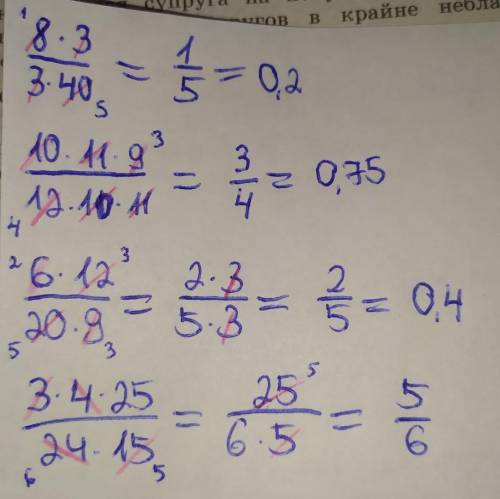 супруга на
в крайне небла
¹ 8·3 / 3·40 ₅ = 1/5 = 0,2
10·11·9 ³ / ₄ 12·10·11 = 3/4 = 0,75
² 6·12 ³ / ₅ 20·9 ₃ = 2·3 / 5·3 = 2/5 = 0,4
3·4·25 / ₆ 24·15 ₅ = 25 ⁵ / 6·5 = 5/6